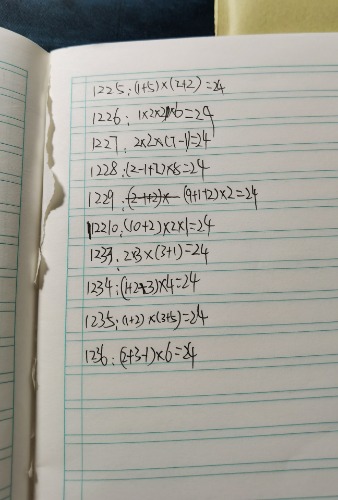 1225:(1+5)×(2+2)=24
1226:1×2×2×6=24
1227:2×2×(7-1)=24
1228:(2-1+2)×8=24
1229:(9+1+2)×2=24
12210:(10+2)×2×1=24
1233:2×3×(3+1)=24
1234:(1+2+3)×4=24
1235:(1+2)×(3+5)=24
1236:(2+3-1)×6=24